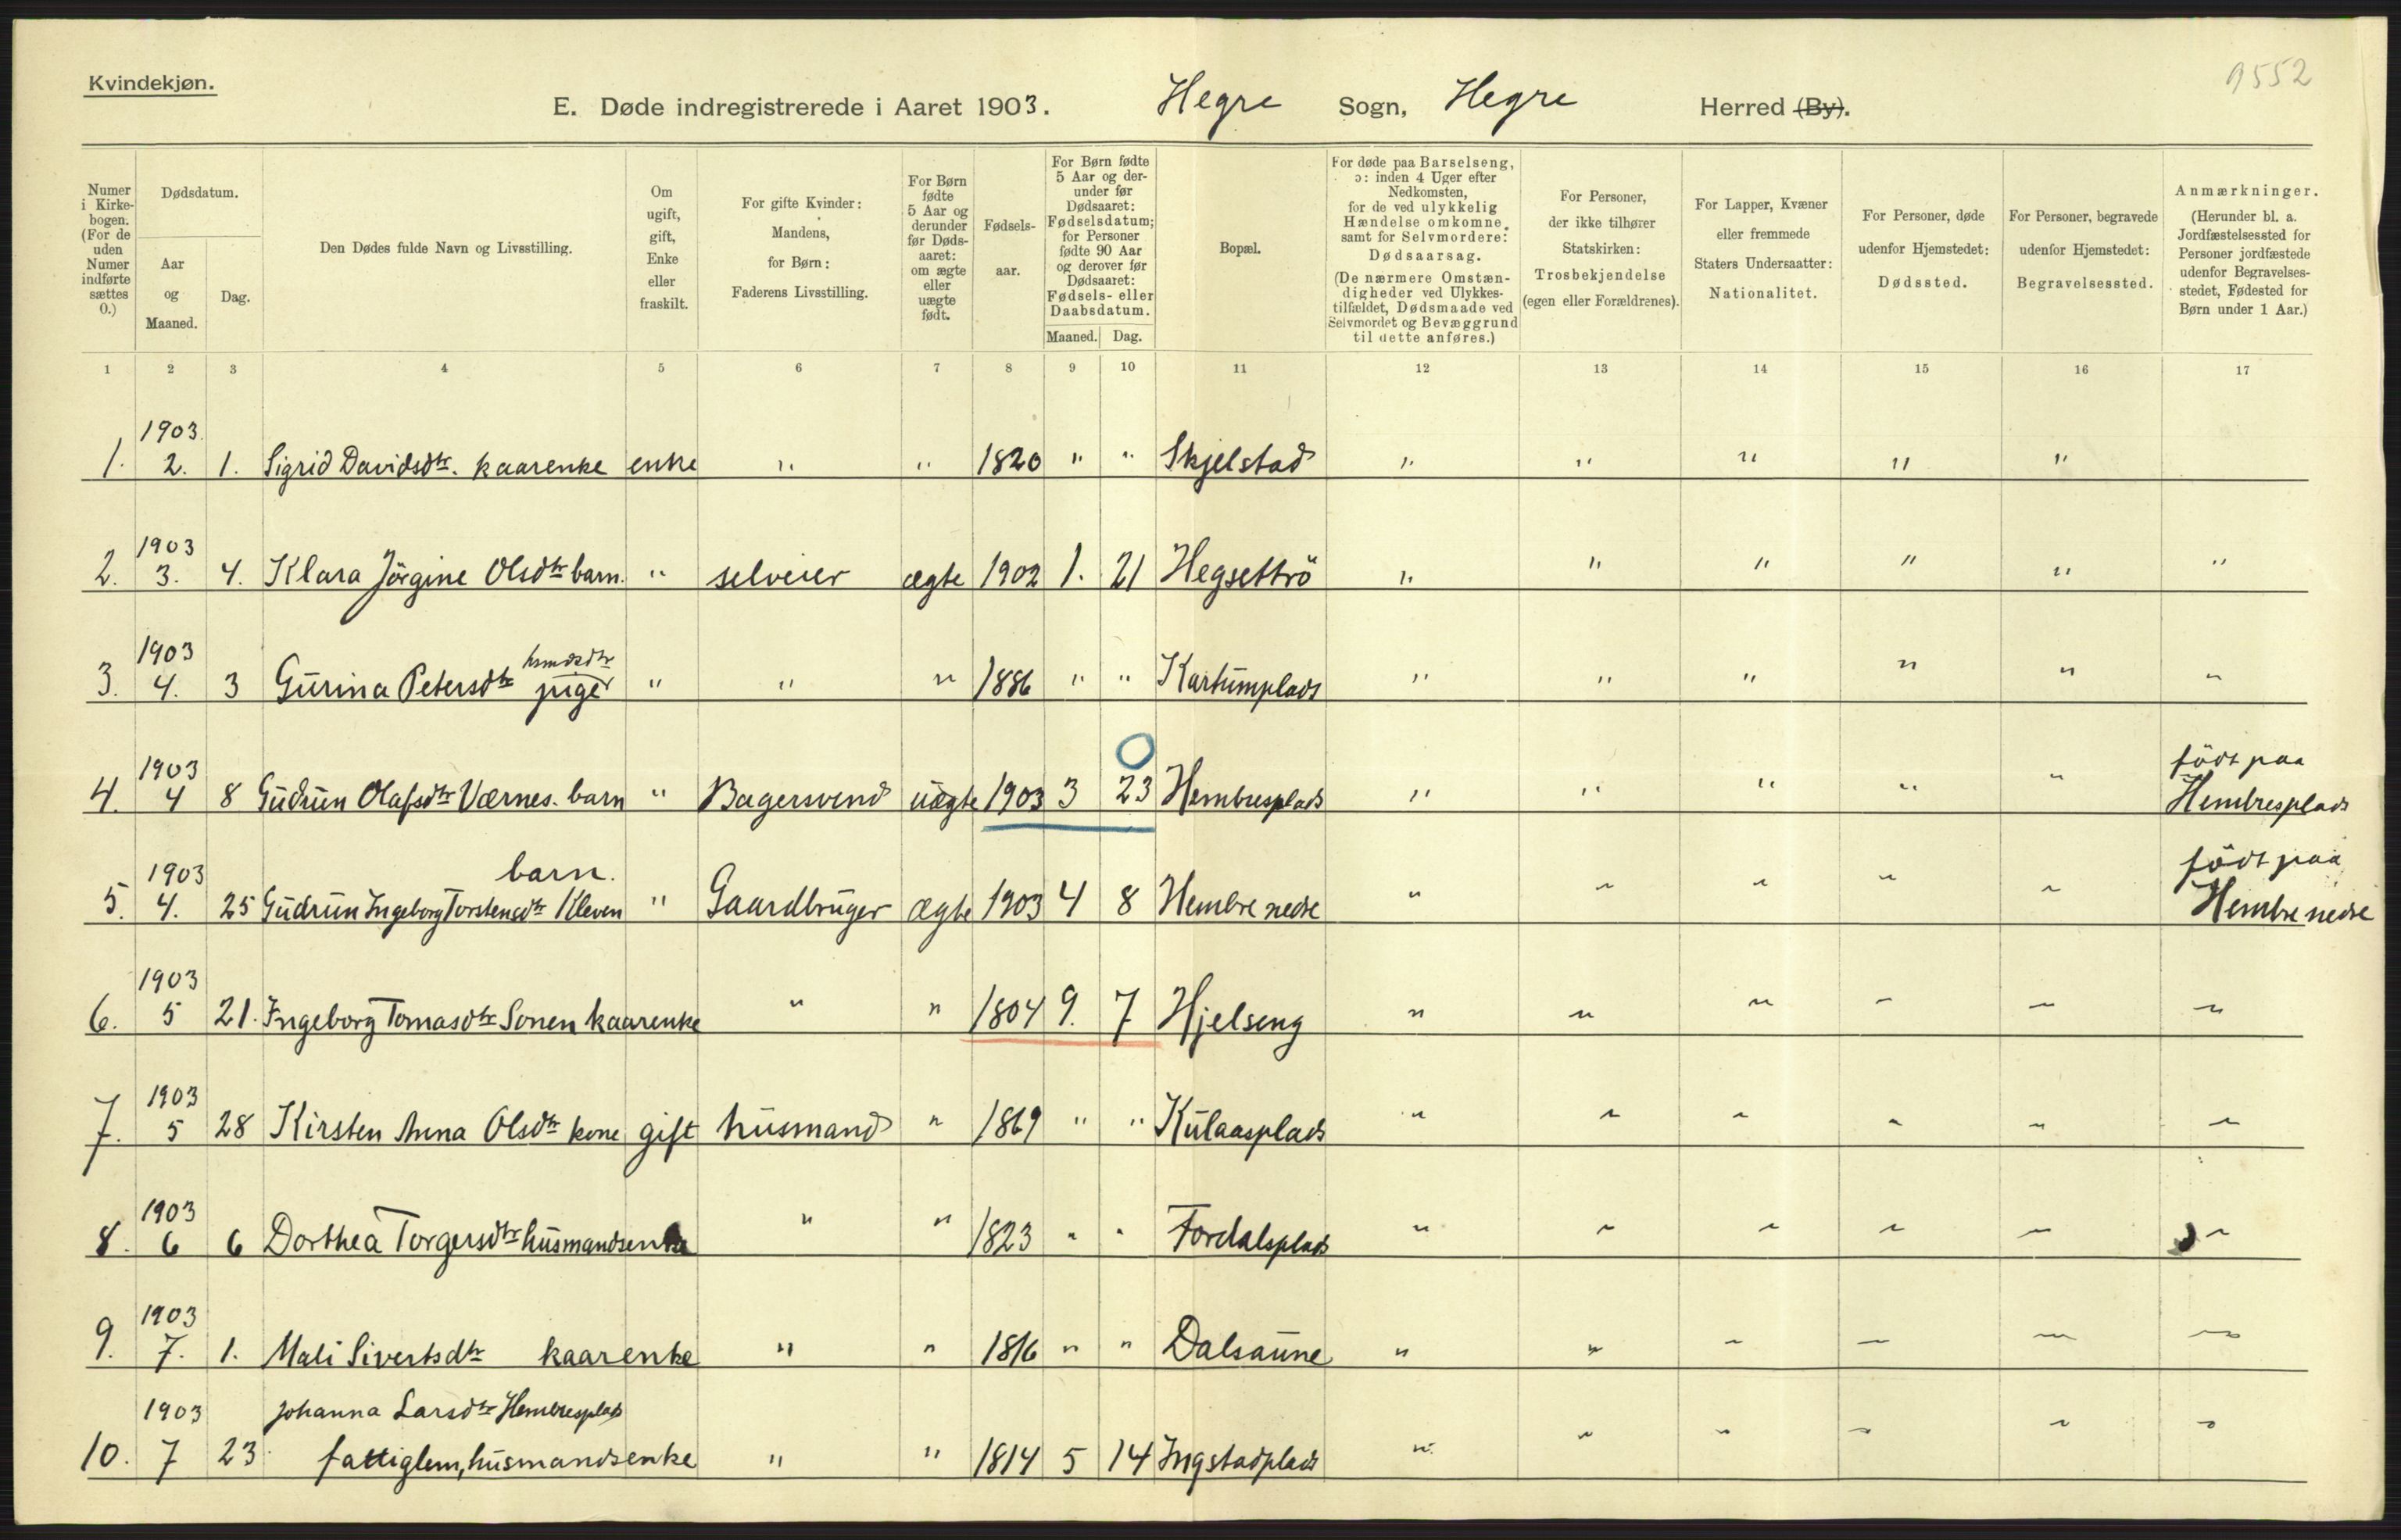 Kvindekjøn.
9552
E. Døde indregistrerede i Aaret 1903. Hegre Sogn, Hegre Herred (By).
Numer i Kirke-bogen. (For de uden Numer indførte sættes 0.)
Dødsdatum.
Aar og Maaned.
Dag.
Den Dødes fulde Navn og Livsstilling.
Om ugift, gift, Enke eller fraskilt.
For gifte Kvinder: Mandens, for Børn: Faderens Livsstilling.
For Børn fødte 5 Aar og derunder før Døds-aaret: om ægte eller uægte født.
Fødsels-aar.
For Børn fødte 5 Aar og der-under før Dødsaaret: Fødselsdatum; for Personer fødte 90 Aar og derover før Dødsaaret: Fødsels- eller Daabsdatum.
Maaned. Dag.
Bopæl.
For døde paa Barselseng, ɔ: inden 4 Uger efter Nedkomsten, for de ved ulykkelig Hændelse omkomne, samt for Selvmordere: Dødsaarsag. (De nærmere Omstæn-digheder ved Ulykkes-tilfældet, Dødsmaade ved Selvmordet og Bevæggrund til dette anføres.)
For Personer, der ikke tilhører Statskirken: Trosbekjendelse (egen eller Forældrenes).
For Lapper, Kvæner eller fremmede Staters Undersaatter: Nationalitet.
For Personer, døde udenfor Hjemstedet: Dødssted.
For Personer, begravede udenfor Hjemstedet: Begravelsessted.
Anmærkninger. (Herunder bl. a. Jordfæstelsessted for Personer jordfæstede udenfor Begravelses-stedet, Fødested for Børn under 1 Aar.)
1 2 3 4 5 6 7 8 9 10 11 12 13 14 15 16 17
1903
1. 2. 1. Sigrid Davidsdtr. kaarenke enke " " 1820 " " Skjelstad " " " " "
1903
2. 3. 4. Klara Jörgine Olsdtr barn. " selveier ægte 1902 1. 21 Hegsettrö " " " " " "
1903 hsmdsdtr
3. 4. 3 Gurina Petersdtr pige " " " 1886 " " Kartumplads " " " " " "
1903 födt paa
4. 4 8 Gudrun Olafsdtr Værnes. barn " Bagersvend uægte 1903 3 23 Hembresplads " " " " " Hembresplads
1903 barn. födt paa
5. 4. 25 Gudrun Ingeborg Torstensdtr Kleven " Gaardbruger ægte 1903 4 8 Hembre nedre " " " " " Hembre nedre
1903
6. 5 21. Ingeborg Tomasdtr Sonen kaarenke " " 1804 9. 7 Hjelseng " " " " " "
1903
7. 5 28 Kirsten Anna Olsdtr kone gift husmand " 1869 " " Kulaasplads " " " " " "
1903
8. 6 6 Dorthea Torgersdtr husmandsenke " " 1823 " " Fordalsplads " " " " " "
1903
9. 7. 1. Mali Sivertsdtr kaarenke " " 1816 " " Dalsaune " " " " " "
1903 Johanna Larsdtr Hembresplads
10. 7 23. fattiglem, husmandsenke " " 1814 5 14 Ingstadplads " " " " " "